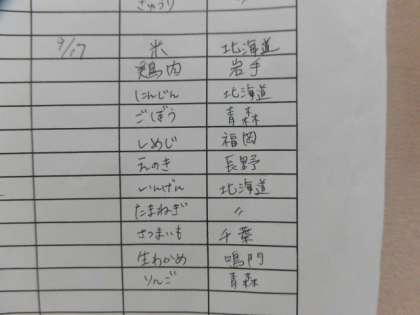 きゅうり 〃
9/17 米 北海道
鶏肉 岩手
にんじん 北海道
ごぼう 青森
しめじ 福岡
えのき 長野
いんげん 北海道
たまねぎ 〃
さつまいも 千葉
生わかめ 鳴門
りんご 青森